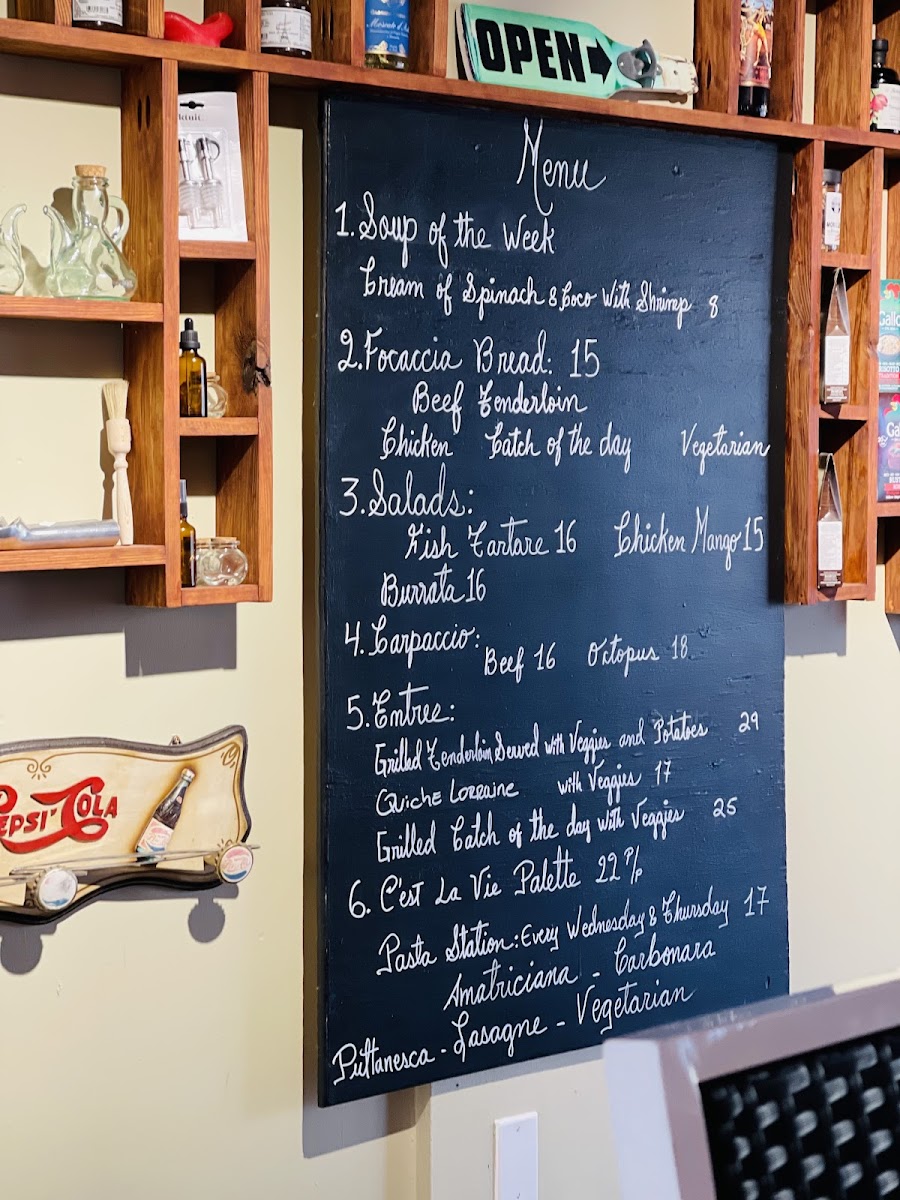 OPEN
Moscato d'A
Menu
1. Soup of the Week
Cream of Spinach & Coco With Shrimp 8
2. Focaccia Bread: 15
Beef Tenderloin
Chicken Catch of the day Vegetarian
3. Salads:
Fish Tartare 16 Chicken Mango 15
Burrata 16
4. Carpaccio:
Beef 16 Octopus 18
5. Entree:
Grilled Tenderloin Served with Veggies and Potatoes 29
Quiche Lorraine with Veggies 17
Grilled Catch of the day with Veggies 25
6. C'est La Vie Palette 22 P/p
Pasta Station: Every Wednesday & Thursday 17
Amatriciana - Carbonara
Puttanesca - Lasagne - Vegetarian
EPSI-COLA
Gallo
RISOTTO
Ga